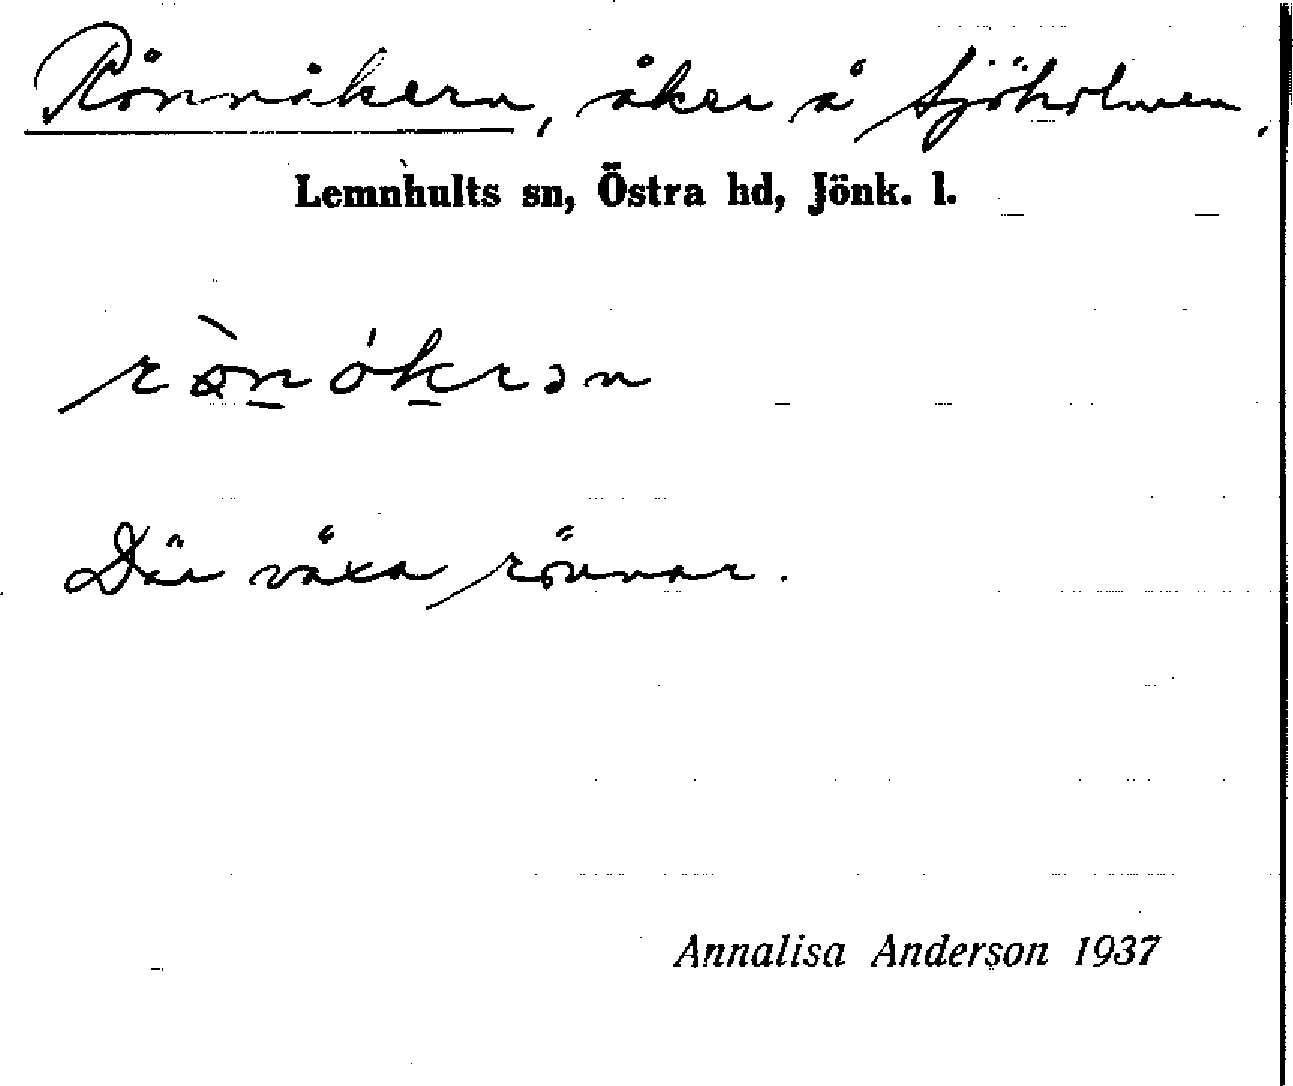 Rönnåkern, åker å Sjöholmen,
Lemnhults sn, Östra hd, Jönk. l.
Där växa rönnar.
Annalisa Anderson 1937